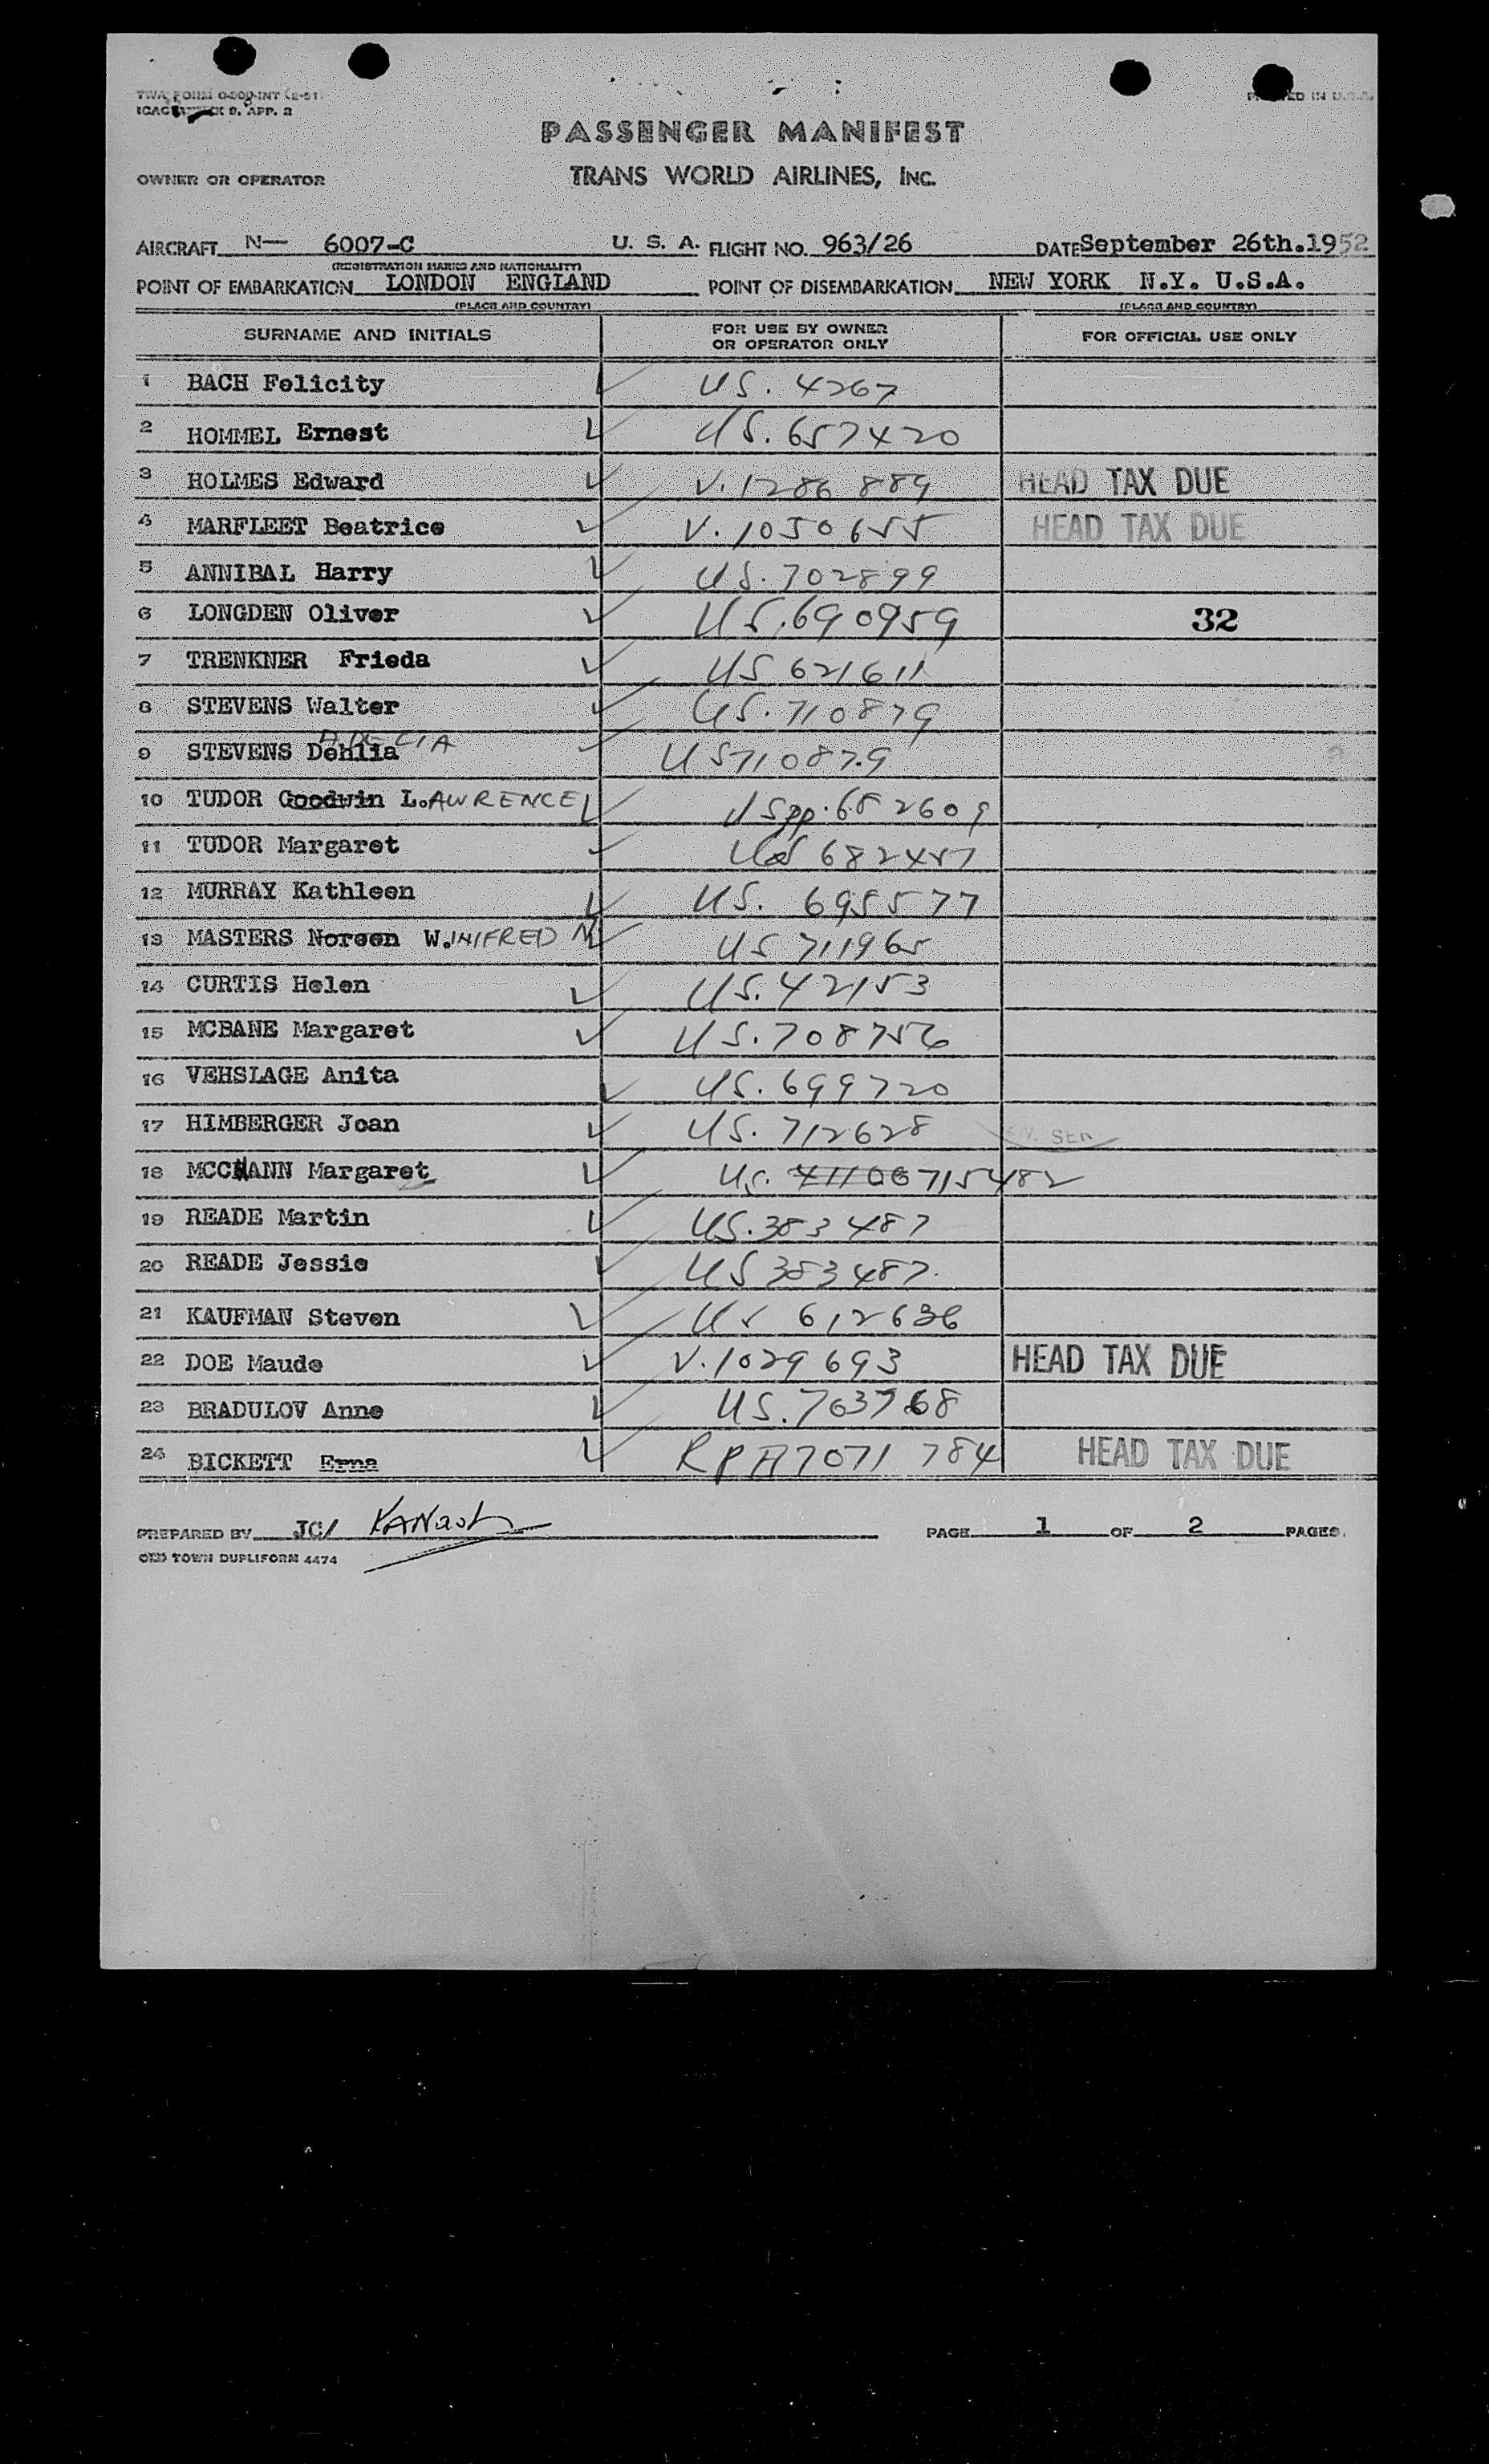 TWA FORM INT (2-51)
9, APP. 2
PRINTED IN U.S.A.
PASSENGER MANIFEST
OWNER OR OPERATOR TRANS WORLD AIRLINES, INC.
AIRCRAFT N— 6007-C U. S. A. FLIGHT NO. 963/26 DATE September 26th.1952
(REGISTRATION MARKS AND NATIONALITY)
POINT OF EMBARKATION LONDON ENGLAND POINT OF DISEMBARKATION NEW YORK N.Y. U.S.A.
(PLACE AND COUNTRY) (PLACE AND COUNTRY)
SURNAME AND INITIALS FOR USE BY OWNER OR OPERATOR ONLY FOR OFFICIAL USE ONLY
1 BACH Felicity US. 4267
2 HOMMEL Ernest US. 657420
3 HOLMES Edward V. 1286 889 HEAD TAX DUE
4 MARFLEET Beatrice V. 1050655 HEAD TAX DUE
5 ANNIBAL Harry US. 702899
6 LONGDEN Oliver US. 690959 32
7 TRENKNER Frieda US 621611
8 STEVENS Walter US. 710879
9 STEVENS Dehlia US710879
10 TUDOR Goodwin L.AWRENCE USpp. 682609
11 TUDOR Margaret US 682457
12 MURRAY Kathleen US. 695577
13 MASTERS Noreen W.INIFRED N US 711965
14 CURTIS Helen US. 42153
15 MCBANE Margaret US. 708756
16 VEHSLAGE Anita US. 699720
17 HIMBERGER Joan US. 712628
18 MCCANN Margaret US. 715482
19 READE Martin US. 383487
20 READE Jessie US 383487.
21 KAUFMAN Steven US 612636
22 DOE Maude V. 1029693 HEAD TAX DUE
23 BRADULOV Anne US. 703768
24 BICKETT Erna RPA7071784 HEAD TAX DUE
PREPARED BY JC/ PAGE 1 OF 2 PAGES.
OLD TOWN DUPLIFORM 4474